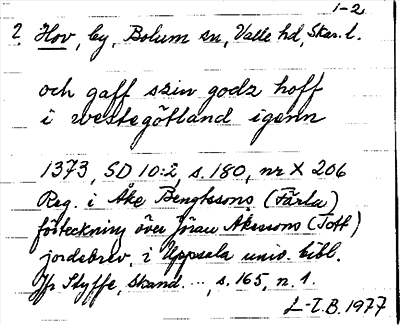 1-2
? Hov, by, Bolum sn, Valle hd, Skar. l.
och gaff szin godz hoff
i westegötland igenn
1373, SD 10:2, s. 180, nr X 206
Reg. i Åke Bengtssons (Färla)
förteckning över Jöran Åkessons (Tott)
jordebrev, i Uppsala univ. bibl.
Jfr Styffe, Skand. ..., s. 165, n. 1.
L-I.B. 1977